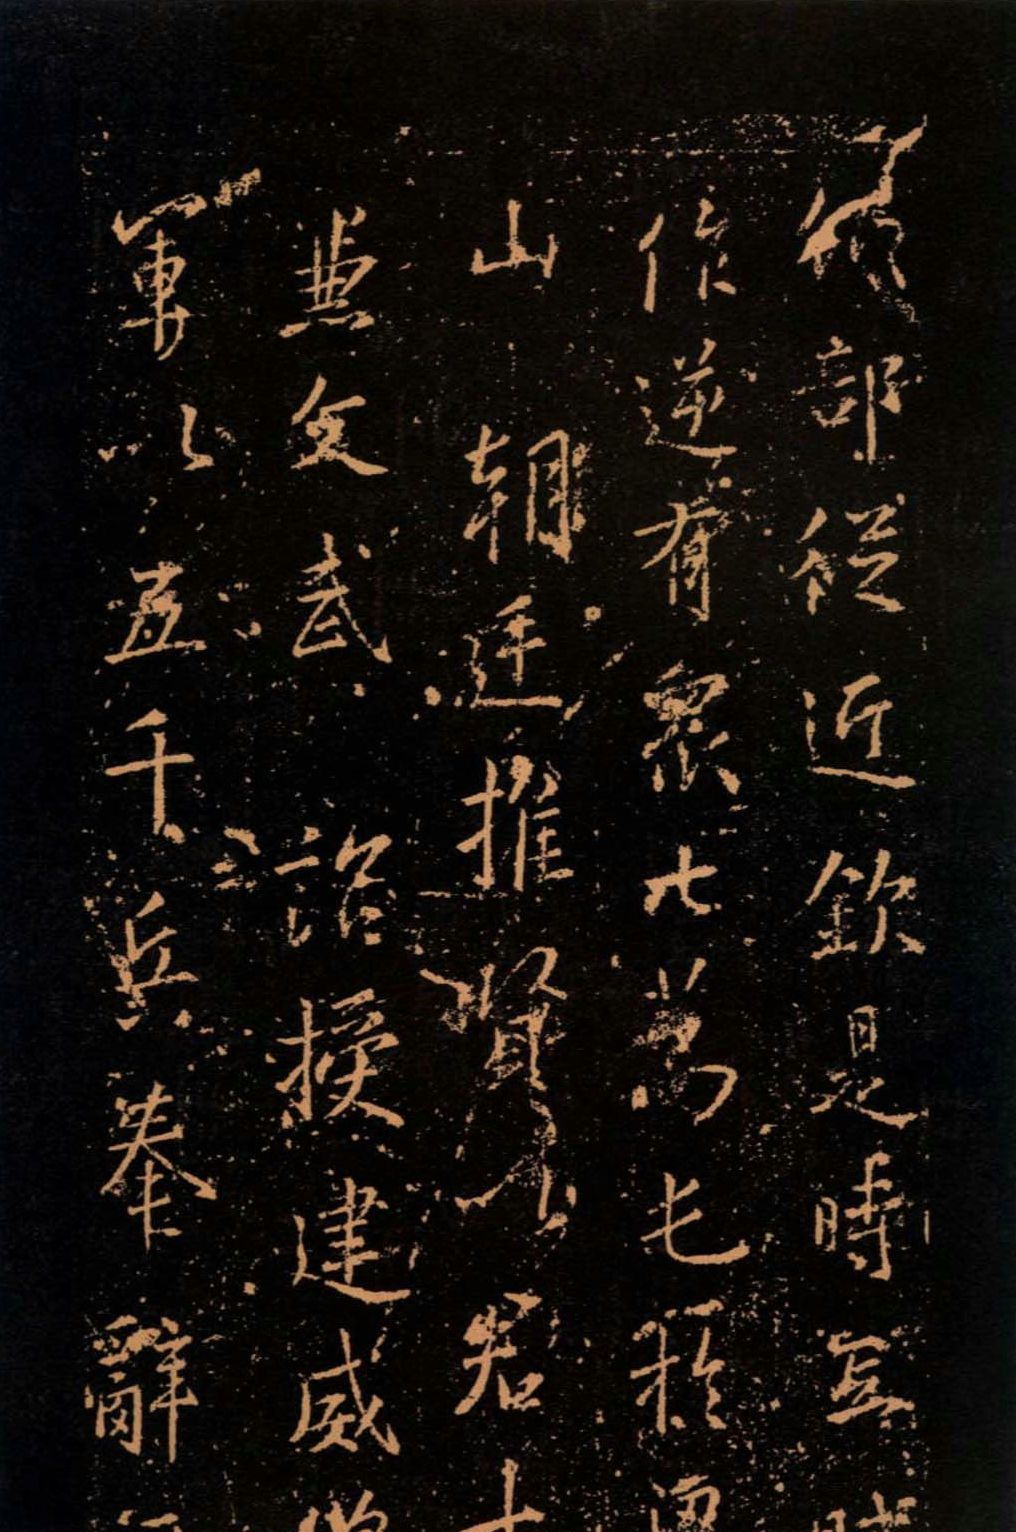 部從近欽是時氐
作逆有眾七萬屯於
山 朝廷推賢以君才
兼文武 詔授建威
軍以五千兵奉辭